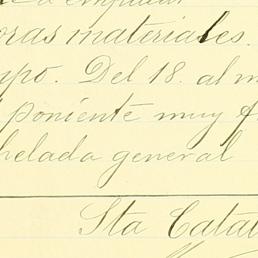 a emplear
oras materiales.
po. Del 18. al m
poniente muy f
helada general
Sta Catal